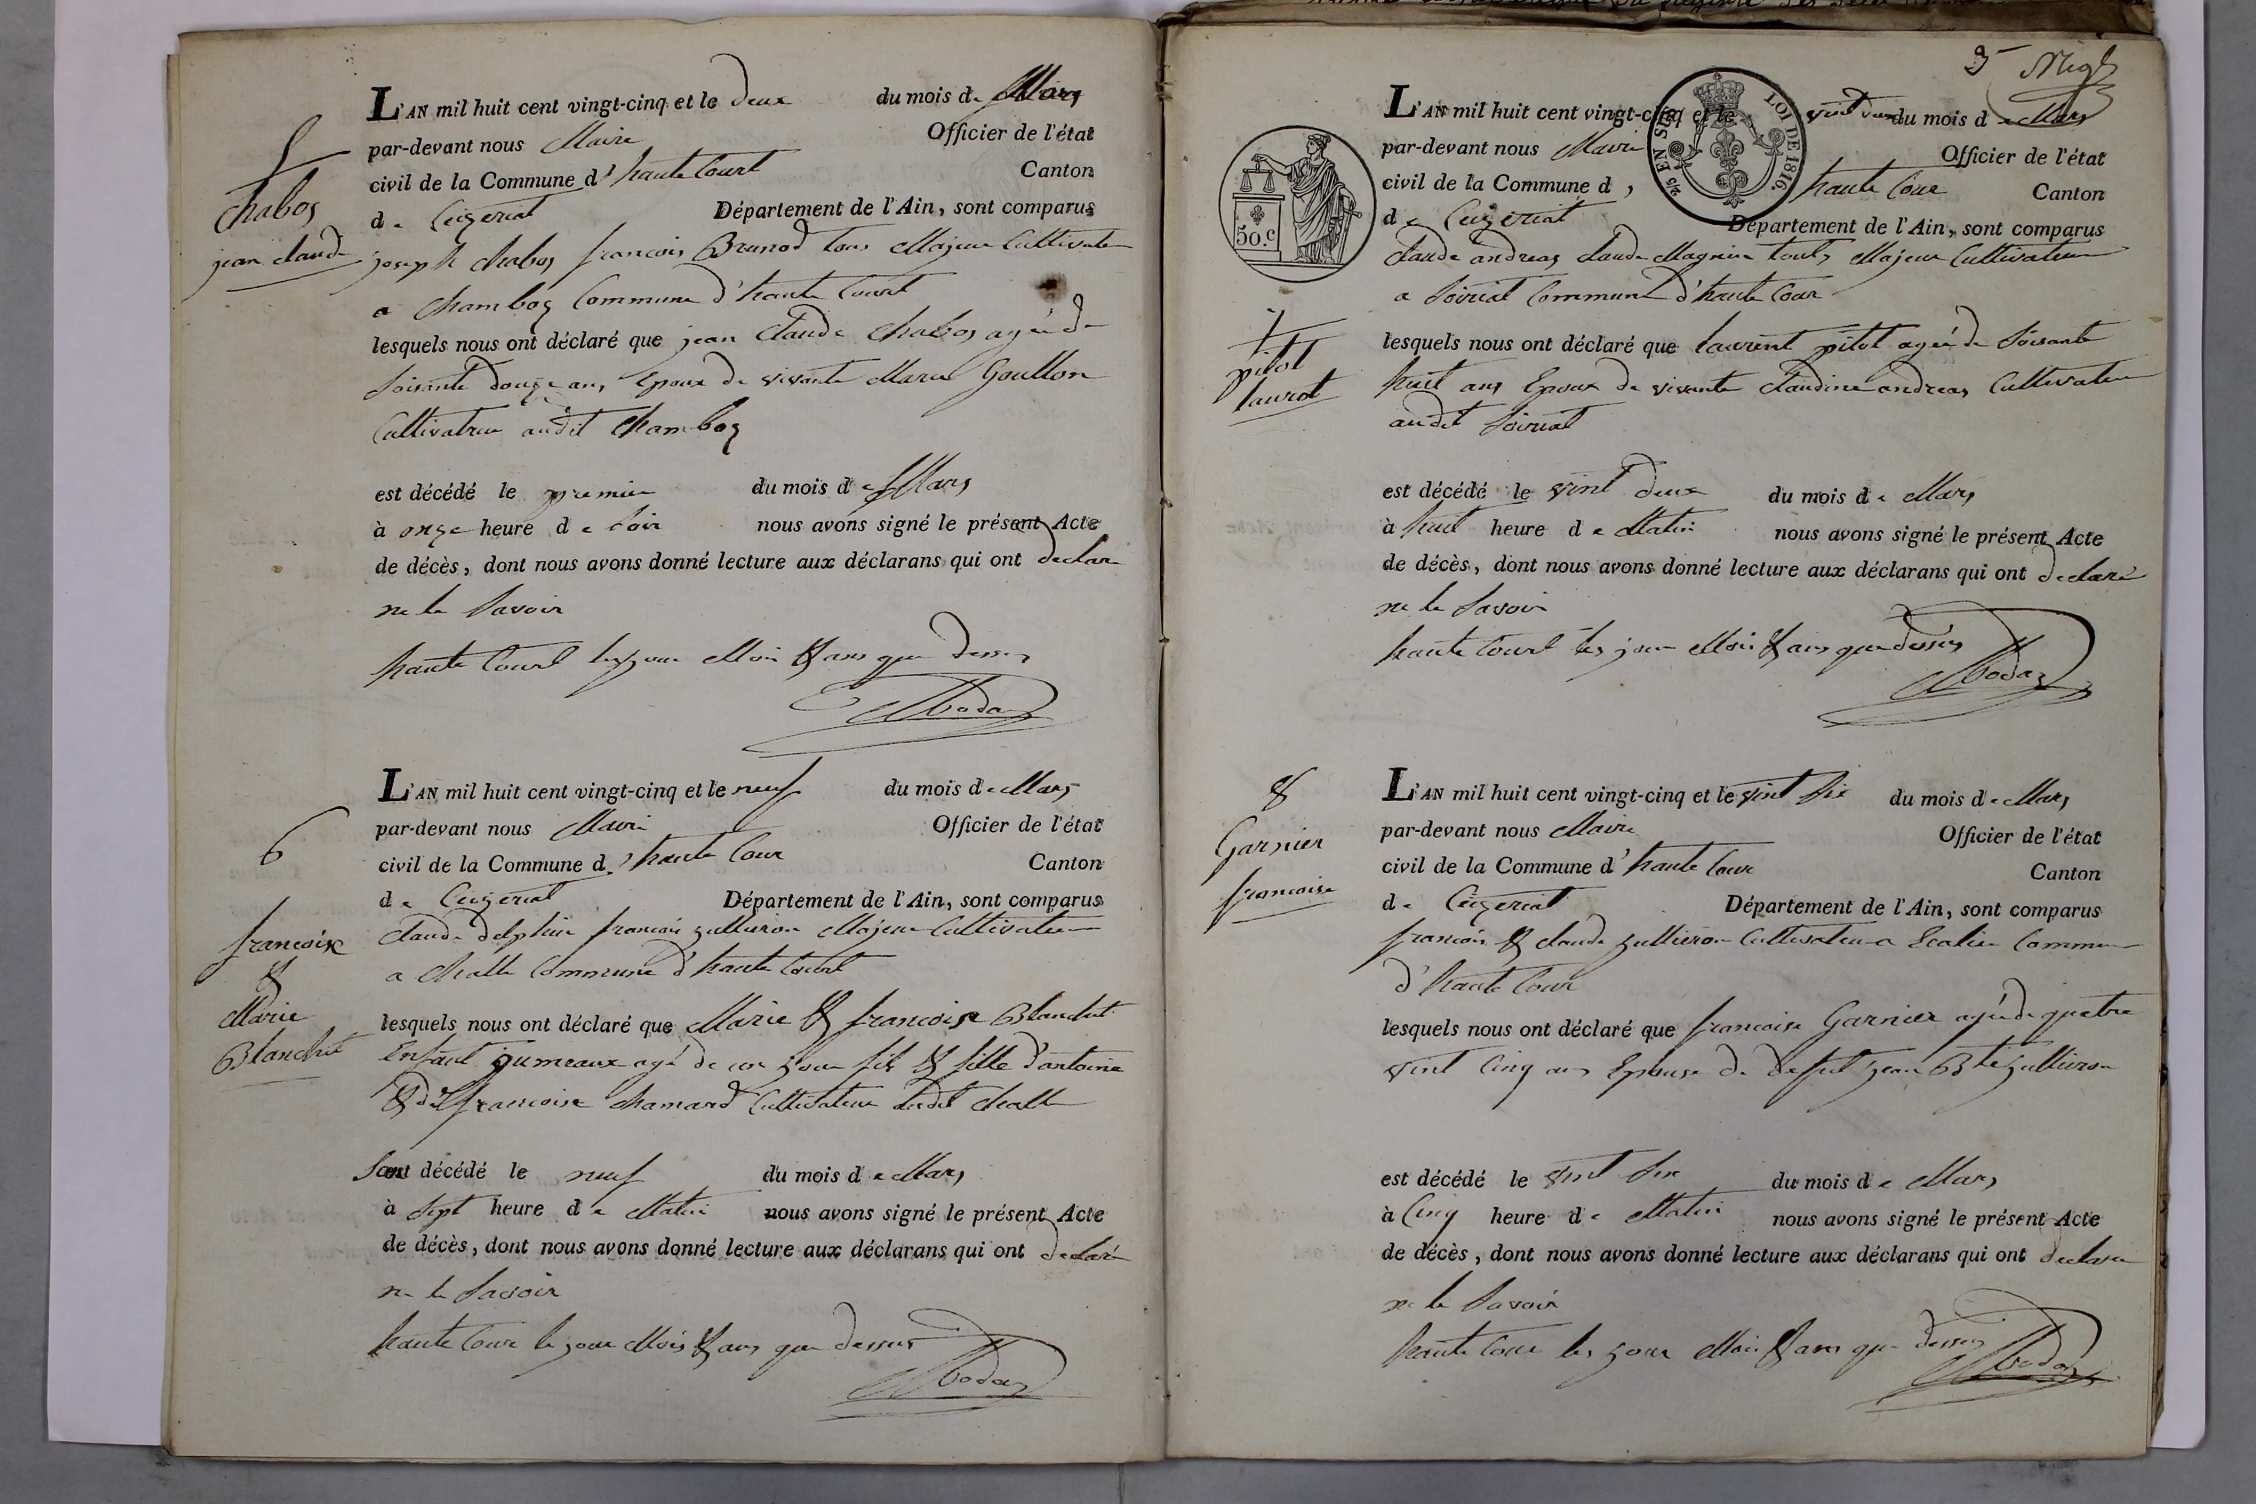 5
chabos
jean claude
L'AN mil huit cent vingt-cinq et le deux du mois de Mars
par-devant nous Maire Officier de l'état
civil de la Commune d'haute Court Canton
de Ceÿzeriat Département de l'Ain, sont comparus
joseph chabos francois Brunod tous Majeur Cultivateur
a chambos Commune d'haute Court
lesquels nous ont déclaré que jean claude chabos agée de
Soisante douze ans Epoux de vivante Marie Goullon
Cultivateur audit chambos
est décédé le premier du mois de Mars
à onze heure de Soir nous avons signé le présent Acte
de décès, dont nous avons donné lecture aux déclarans qui ont declare
ne le Savoir
haute Court les jour Mois & ans que dessus
6
francoise
&
Marie
Blanchet
L'AN mil huit cent vingt-cinq et le neuf du mois de Mars
par-devant nous Maire Officier de l'état
civil de la Commune d'haute Cour Canton
de Ceÿzeriat Département de l'Ain, sont comparus
claude delphin francois jullieron Majeur Cultivateur
a challe Commune d'haute Court
lesquels nous ont déclaré que Marie & francoise Blanchet
Enfant jumeaux agé de un jour fils & fille d'antoine
& de francoise chamard Cultivateur dudit challe
Sont décédé le neuf du mois de Mars
à Sept heure de Matin nous avons signé le présent Acte
de décès, dont nous avons donné lecture aux déclarans qui ont declaré
ne le Savoir
haute Cour le jour Mois & ans que dessus
3
LOI DE 1816.
2/5 EN SUS
50.c
7
pitot
laurot
L'AN mil huit cent vingt-cinq et le vint deux du mois de Mars
par-devant nous Maire Officier de l'état
civil de la Commune d' haute Cour Canton
de Ceÿzeriat Département de l'Ain, sont comparus
claude andreas claude Magnin tout Majeur Cultivateur
a Soiriat Commune d'haute Cour
lesquels nous ont déclaré que laurent pitot agée de Soisante
huit ans Epoux de vivante claudine andreas Cultivateur
audit Soiriat
est décédé le vint deux du mois de Mars
à huit heure de Matin nous avons signé le présent Acte
de décès, dont nous avons donné lecture aux déclarans qui ont declaré
ne le Savoir
haute Court les jour Mois & ans que dessus
8
Garnier
francoise
L'AN mil huit cent vingt-cinq et le vint Six du mois de Mars
par-devant nous Maire Officier de l'état
civil de la Commune d'haute Cour Canton
de Ceÿzeriat Département de l'Ain, sont comparus
francois & claude jullieron Cultivateur a Commune
d'haute Cour
lesquels nous ont déclaré que francoise Garnier agée de quatre
vint Cinq ans Epouse de defut jean Bte jullieron
est décédé le vint Six du mois de Mars
à Cinq heure de Matin nous avons signé le présent Acte
de décès, dont nous avons donné lecture aux déclarans qui ont declare
ne le Savoir
haute Cour les jour Mois & ans que dessus